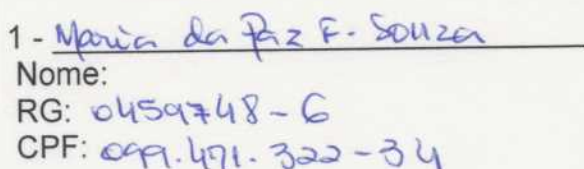 1 - Maria da Paz F. Souza
Nome:
RG: 0459748-6
CPF: 099.471.322-34